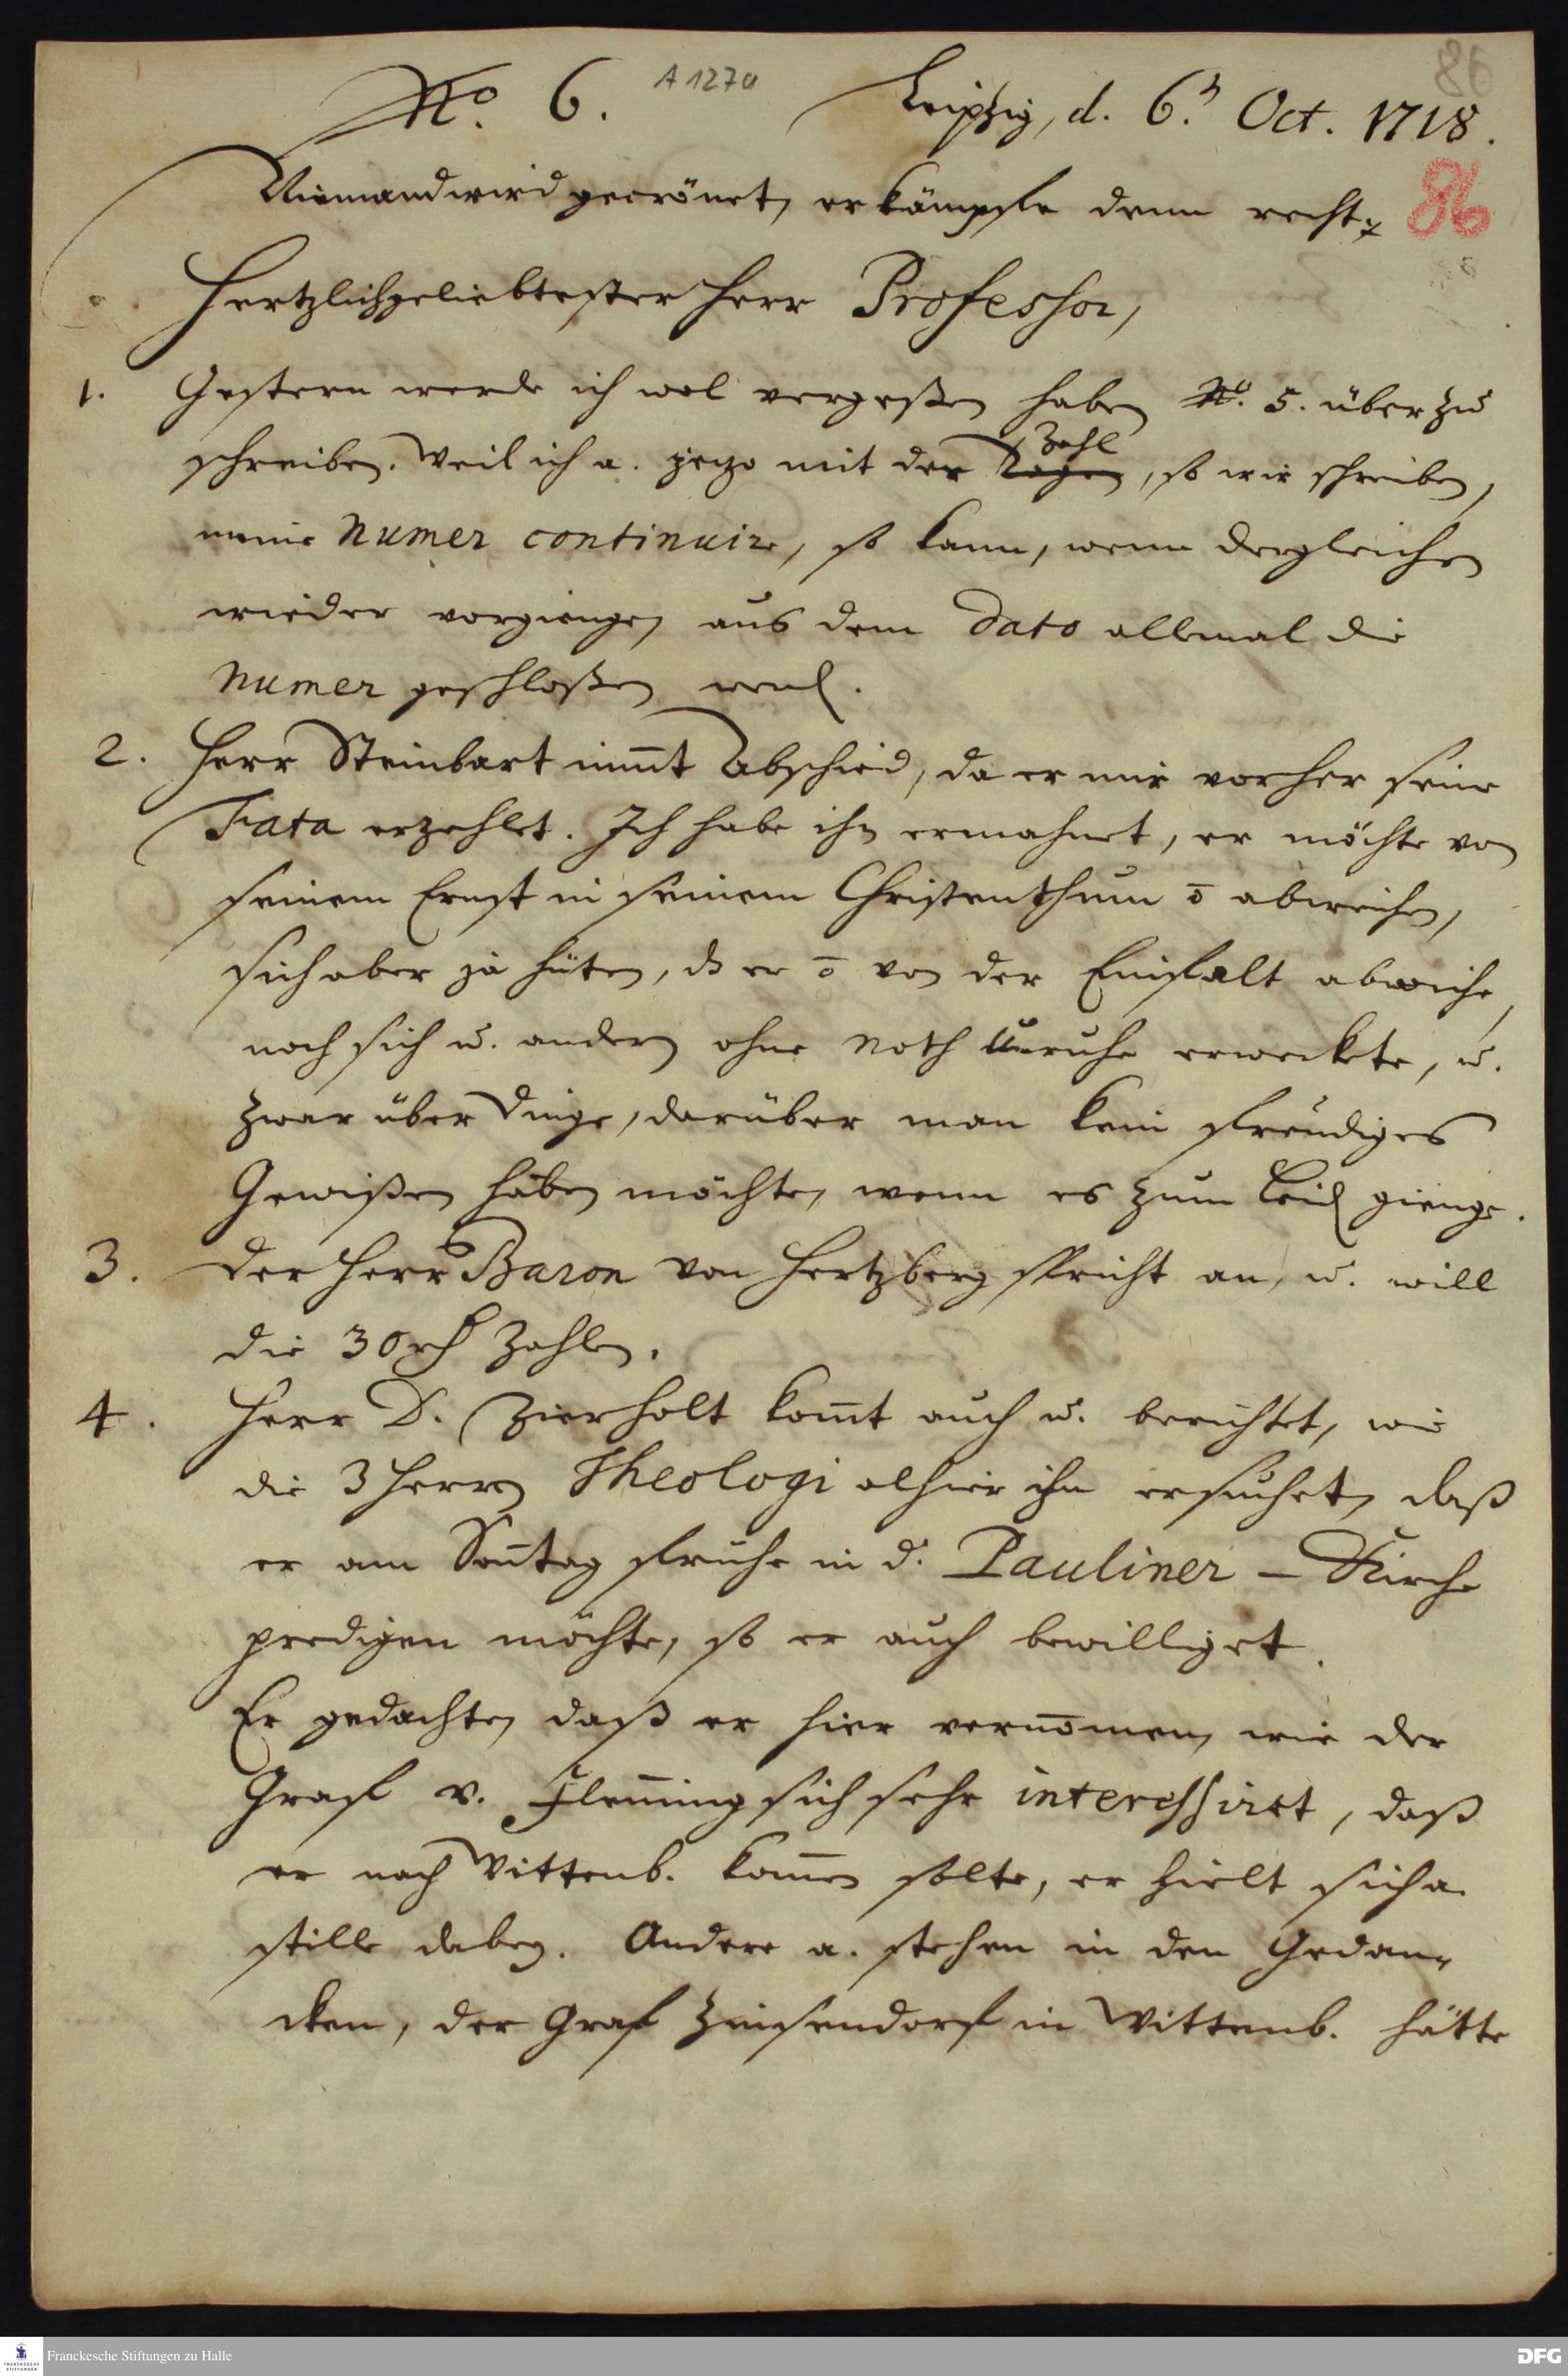 No. 6. A 127a Leipzig, d. 6. Oct. 1718.
86
Niemand wird gecrönet, er kämpfe denn recht.
86
Hertzlichgeliebtester Herr Professor,
1. Gestern werde ich wol vergeßen haben No. 5. überzu
schreiben. Weil ich a. jezo mit der Zahl, so wir schreiben,
meine Numer continuire, so kann, wenn dergleichen
wieder vorgienge, aus dem Dato allemal die
Numer geschloßen werd.
2. Herr Steinbart nimt Abschied, da er mir vorher seine
Fata erzehlet. Ich habe ihn ermahnet, er möchte von
seinem Ernst in seinem Christenthum õ abweichen,
sich aber ja hüten, dz er õ von der Einfalt abweiche,
noch sich u. andern ohne Noth Unruhe erweckete, u.
zwar über Dinge, darüber man kein freudiges
Gewißen haben möchte, wenn es zum Leid gienge.
3. Der Herr Baron von Hertzberg spricht an, u. will
die 30 rth zahlen.
4. Herr D. Zierholt komt auch u. berichtet, wie
die 3 Herren Theologi alhier ihn ersuchet, daß
er am Sontag fruhe in d. Pauliner-Kirche
predigen möchte, so er auch bewilliget.
Er gedachte, daß er hier vernomen, wie der
Graf v. Fleming sich sehr interessiret, daß
er nach Wittenb. komen solte, er hielt sich a.
stille dabey. Andere a. stehen in den Gedan-
cken, der Graf Zinsendorf in Wittenb. hätte
Franckesche Stiftungen zu Halle
DFG